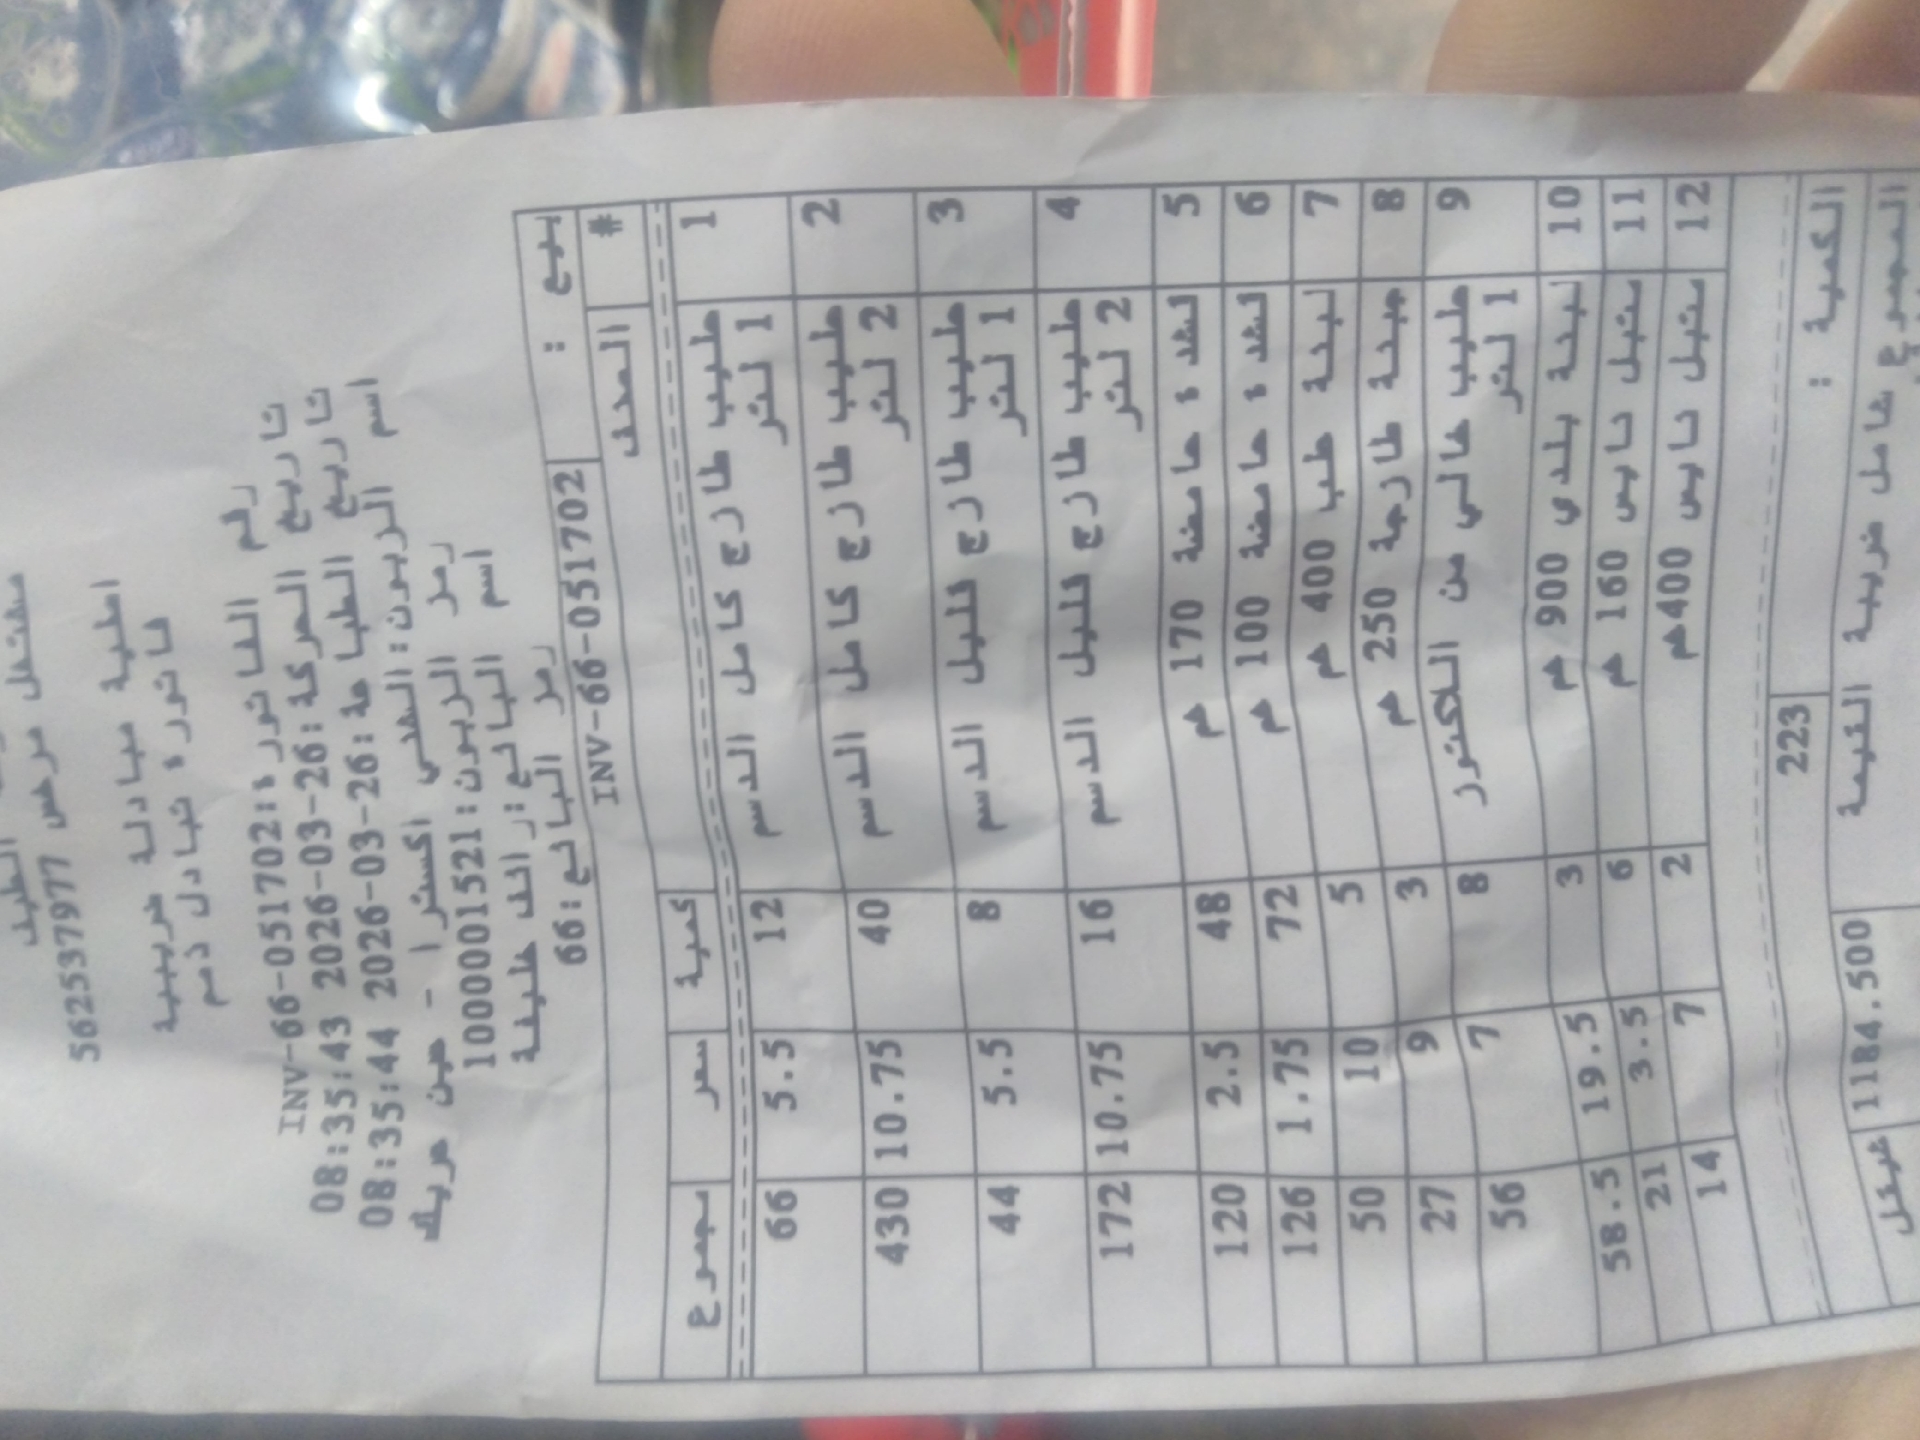 مشتغل مرخص 562537977
اصلية مبادلة ضريبية
فاتورة تبادل ذمم
رقم الفاتورة: INV-66-051702
تاريخ الحركة: 2026-03-26 08:35:43
تاريخ الطباعة: 2026-03-26 08:35:44
اسم الزبون:
اكسترا -
رمز الزبون: 1000001521
اسم البائع: رائف خليفة
رمز البائع: 66
بيع : INV-66-051702
# الصنف كمية سعر مجموع
1 حليب طازج كامل الدسم 1 لتر 12 5.5 66
2 حليب طازج كامل الدسم 2 لتر 40 10.75 430
3 حليب طازج قليل الدسم 1 لتر 8 5.5 44
4 حليب طازج قليل الدسم 2 لتر 16 10.75 172
5 قشدة حامضة 170 غم 48 2.5 120
6 قشدة حامضة 100 غم 72 1.75 126
7 لبنة 400 غم 5 10 50
8 جبنة طازجة 250 غم 3 9 27
9 حليب خالي من اللاكتوز 1 لتر 8 7 56
10 لبنة بلدي 900 غم 3 19.5 58.5
11 متبل 160 غم 6 3.5 21
12 متبل 400غم 2 7 14
الكمية : 223
المجموع شامل ضريبة القيمة 1184.500 شيقل